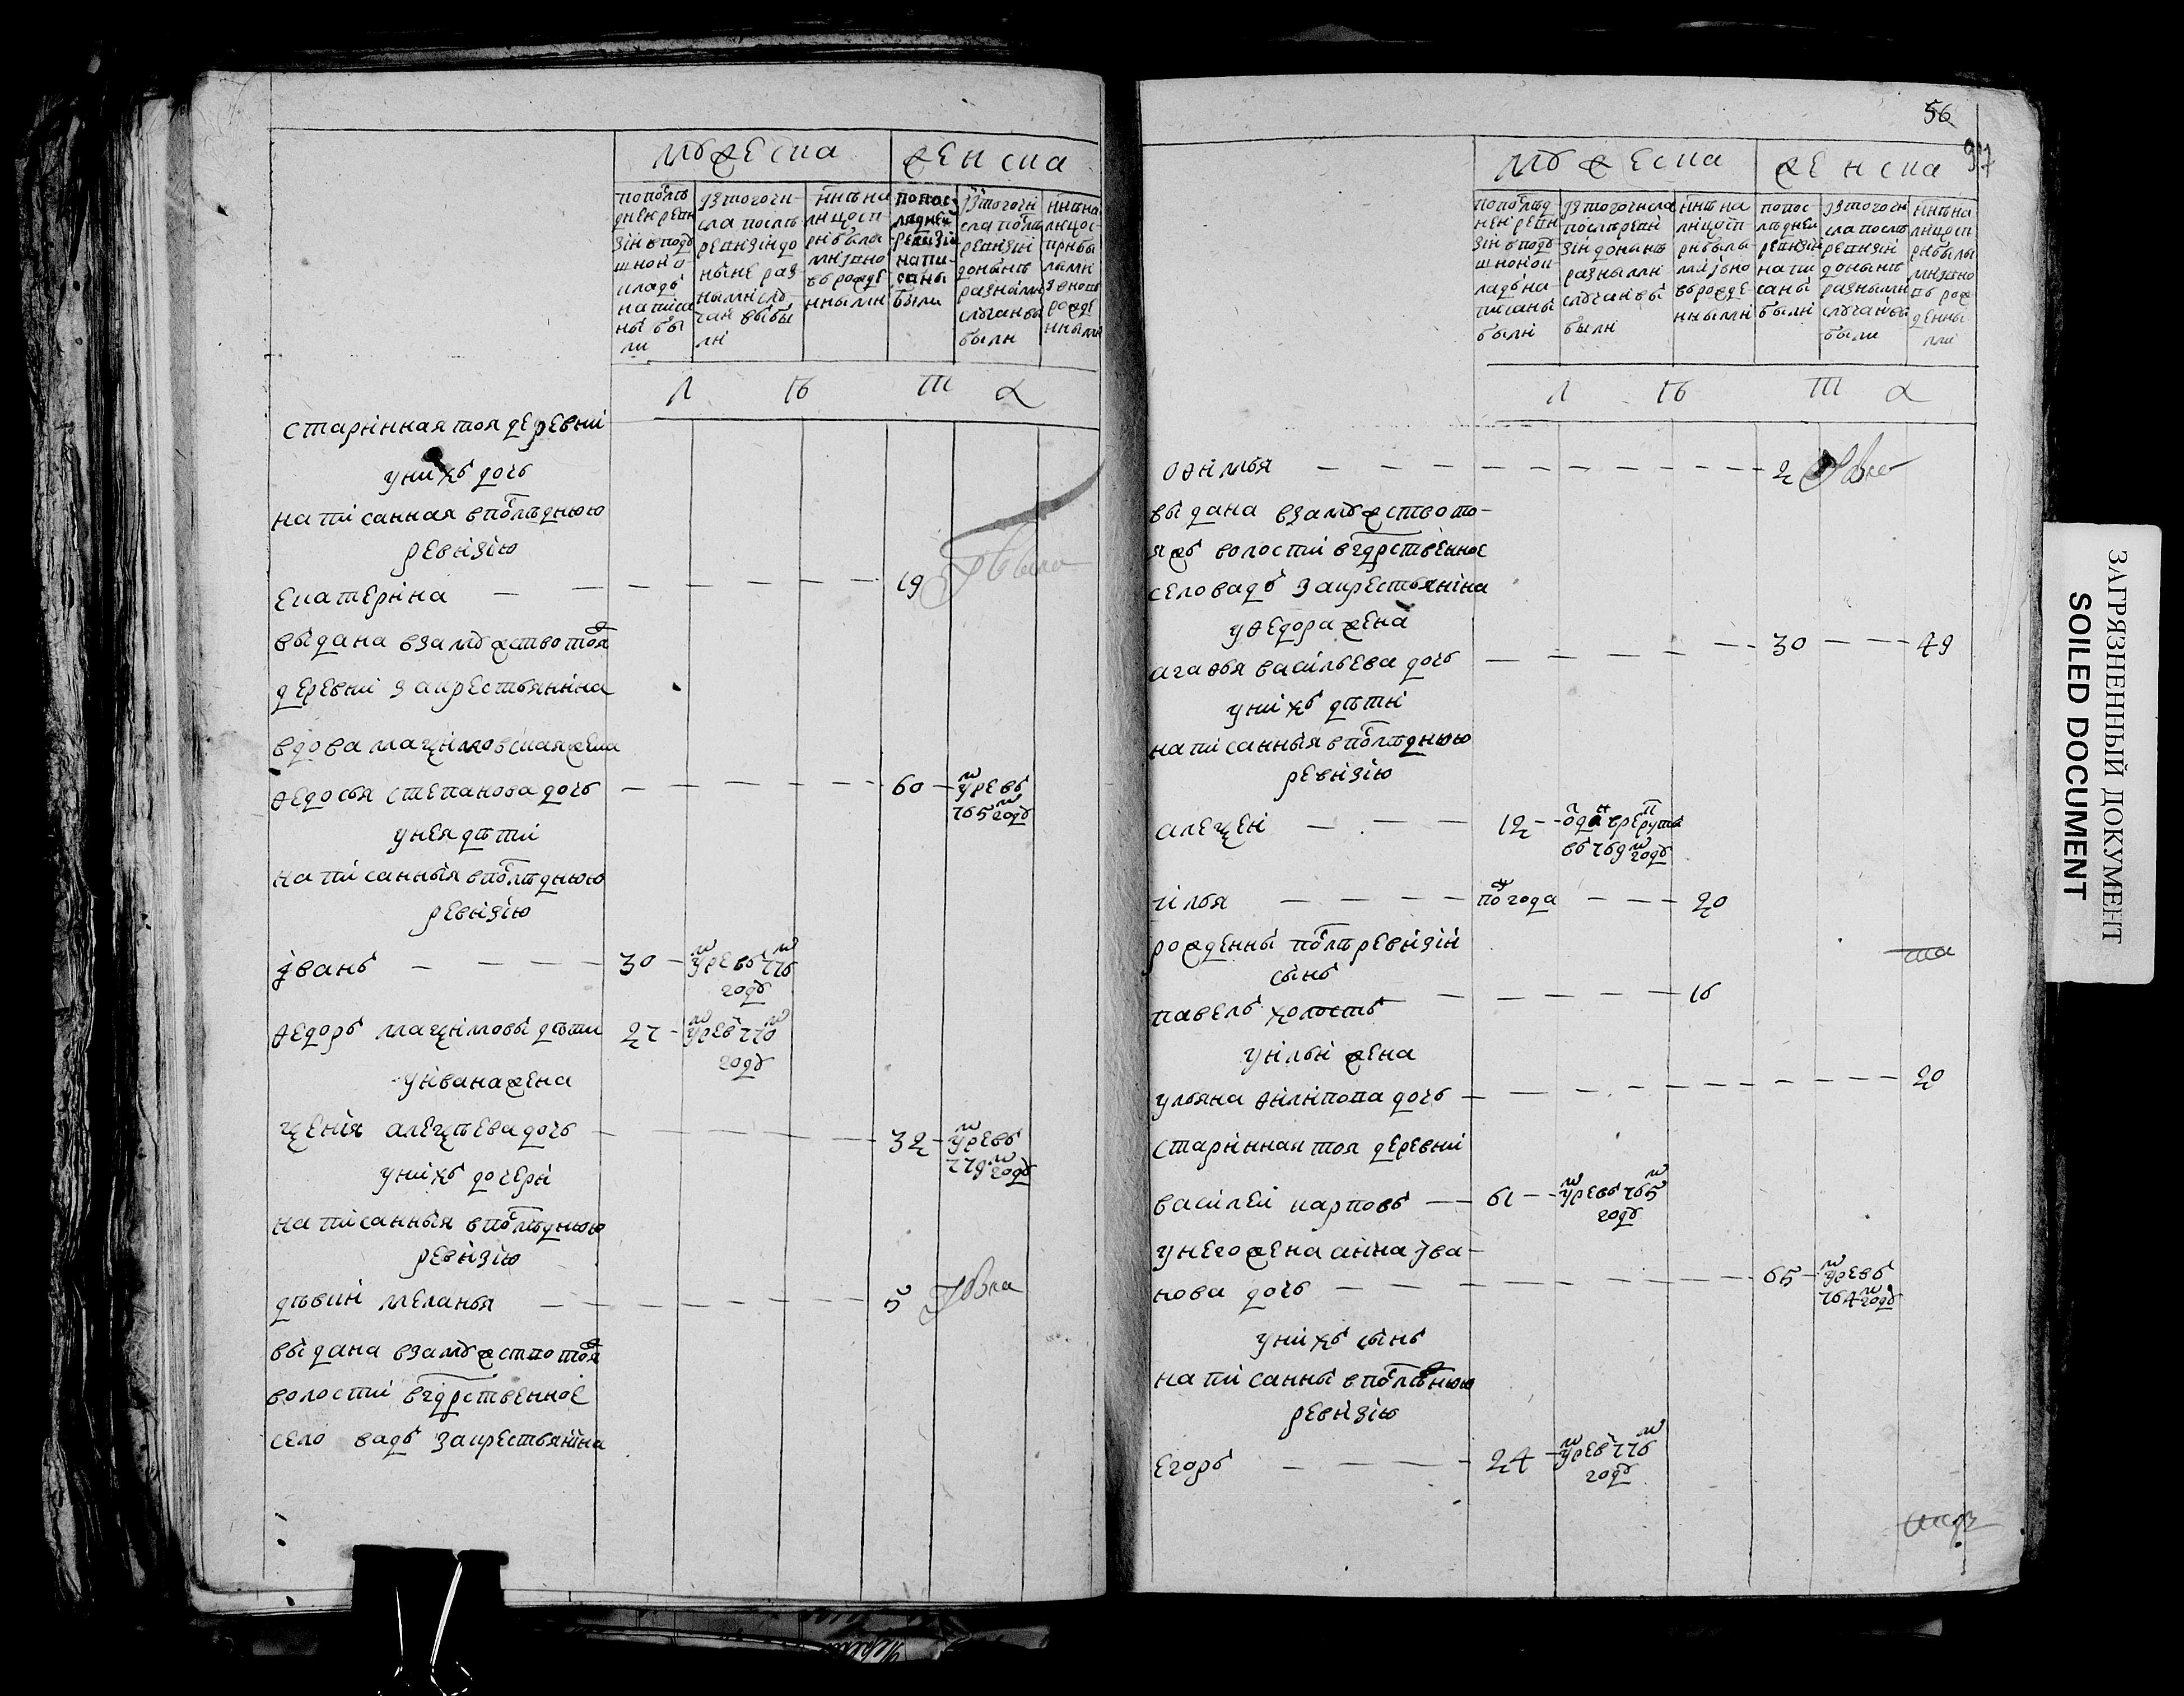 мужеска
женска
по последней ревизии в подушной оклад написаны были
из того числа после ревизии до ныне разными случаи выбыли
ныне на лицо с прибылыми и вновь рожденными
по последней ревизии написаны были
из того числа после ревизии до ныне разными случаи выбыли
ныне на лицо с прибылыми и вновь рожденными
л ѣ т а
старинная тоя деревни
у нихъ дочь
написанная в последнюю
ревизию
екатерина — — — — — — 19
выдана взамужство тоя
деревни за крестьянина
вдова маѯимовская жена
ѳедосья степанова дочь — — — — 60 — умре въ
765м году
у нея дѣти
написанныя в последнюю
ревизию
иванъ — — — — 30 — умре въ 776м
году
ѳедоръ маѯимовы дѣти 27 — умре въ 770м
году
у ивана жена
ѯения алеѯѣева дочь — — — — 32 — умре въ
779м году
у нихъ дочери
написанныя в последнюю
ревизию
дѣвки меланья — — — — — 5
выдана взамужство тоя
волости в гдрственное
село вадъ за крестьянина
56
97
мужеска
женска
по последней ревизии в подушной окладъ написаны были
из того числа после ревизии до ныне разными случаи выбыли
ныне на лицо с прибылыми и вновь рожденными
по последней ревизии написаны были
из того числа после ревизии до ныне разными случаи выбыли
ныне на лицо с прибылыми и вновь рожденными
л ѣ т а
оѳимья — — — — — — — — 2
выдана взамужство то-
яжъ волости в гдрственное
село вадъ за крестьянина
у ѳедора жена
агаѳья васильева дочь — — — — — 30 — — 49
у нихъ дѣти
написанныя в последнюю
ревизию
алеѯей — — — 12 — отданъ в рекруты
въ 769м году
илья — — — — полгода — — — 20
рожденны после ревизии
сынъ
павелъ холостъ — — — — 16
у ильи жена
ульяна ѳилипова дочь — — — — — — — 20
старинная тоя деревни
василей карповъ — 61 — умре въ 765м
году
у него жена анна ива-
нова дочь — — — — — — 65 — умре въ
764м году
у нихъ сынъ
написанны в последнюю
ревизию
егоръ — — — 24 — умре въ 776м
году
ЗАГРЯЗНЕННЫЙ ДОКУМЕНТ
SOILED DOCUMENT